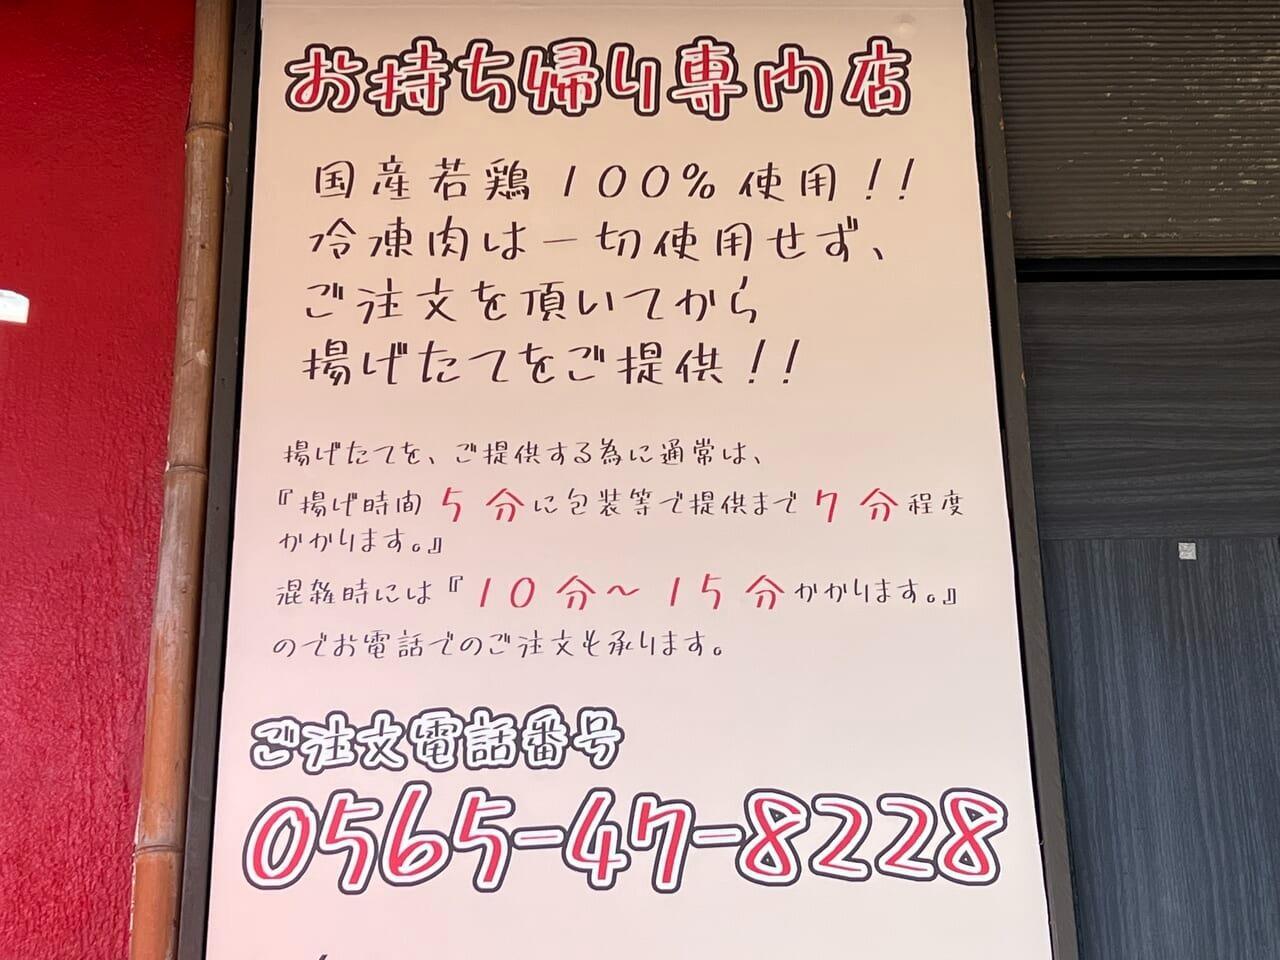 お持ち帰り専門店
国産若鶏100%使用!!
冷凍肉は一切使用せず、
ご注文を頂いてから
揚げたてをご提供!!
揚げたてを、ご提供する為に通常は、
『揚げ時間5分に包装等で提供まで7分程度
かかります。』
混雑時には『10分～15分かかります。』
のでお電話でのご注文も承ります。
ご注文電話番号
0565-47-8228